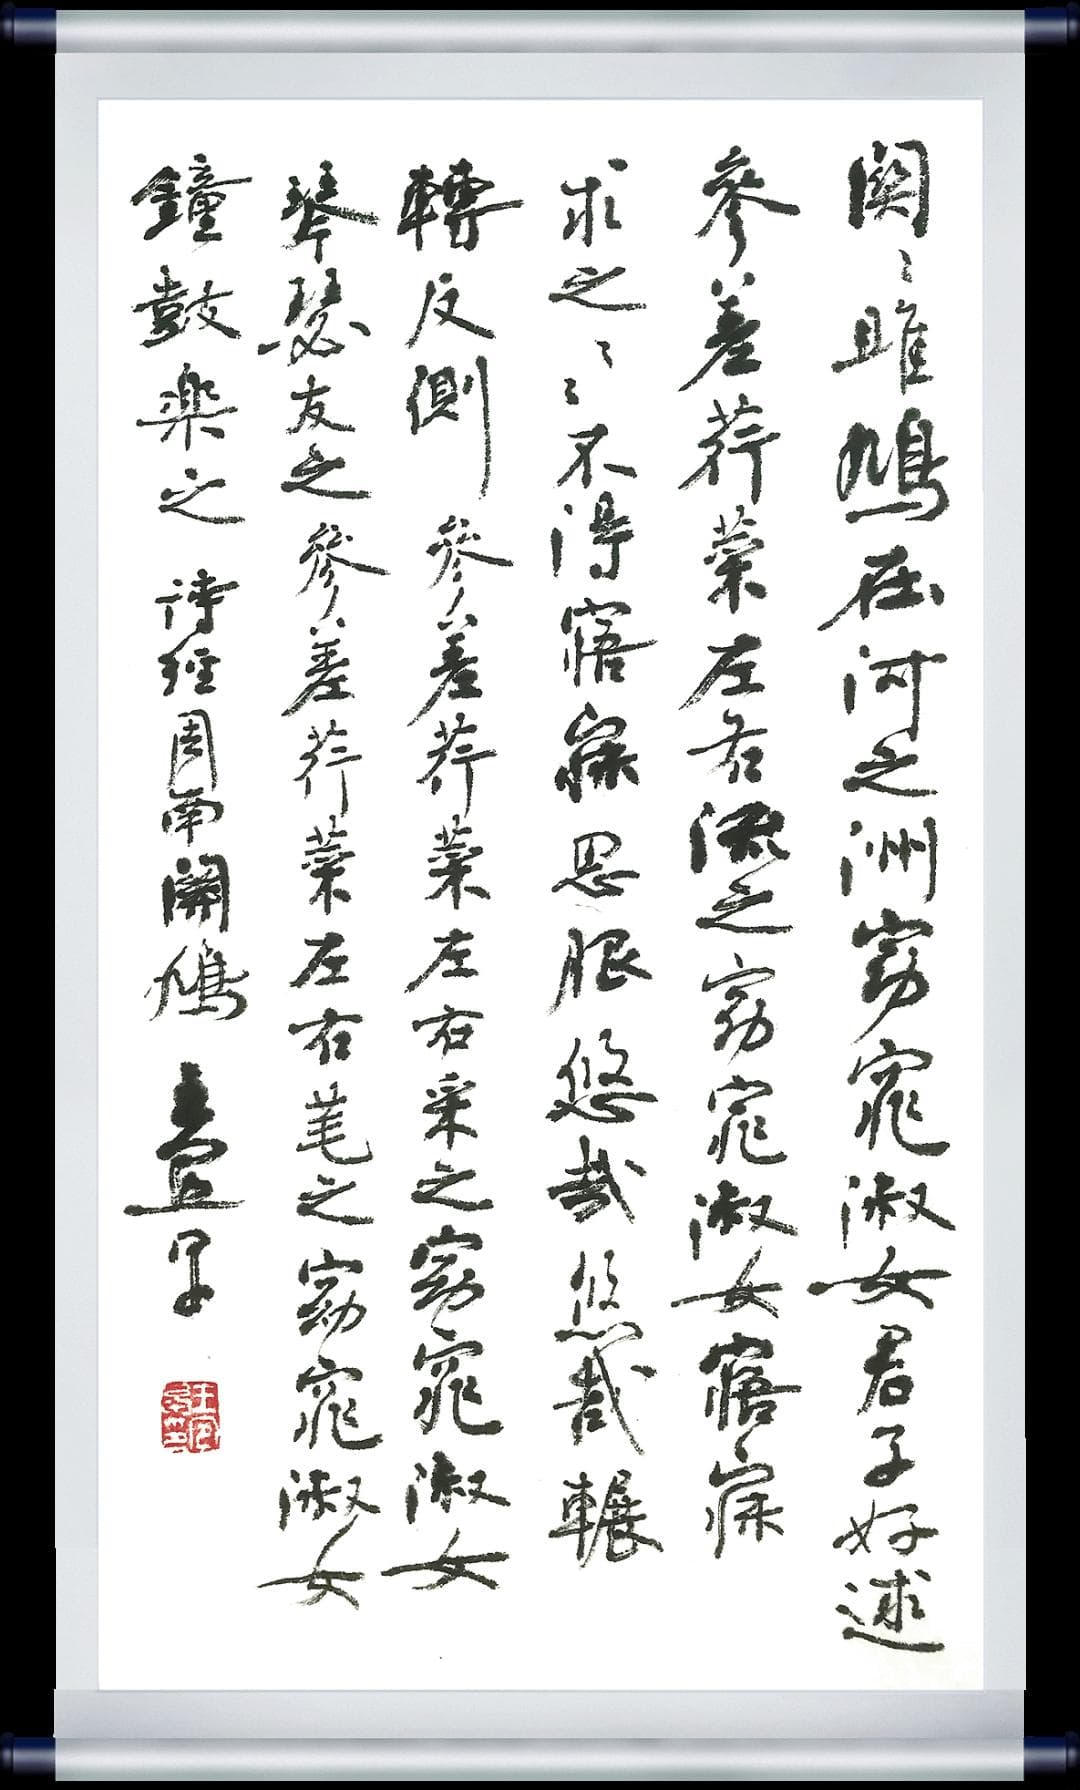 関〻雎鳩在河之洲窈窕淑女君子好逑
參差荇菜左右流之窈窕淑女寤寐
求之〻〻不得寤寐思服悠哉悠哉輾
轉反側 參差荇菜左右采之窈窕淑女
琴瑟友之 參差荇菜左右芼之窈窕淑女
鐘鼓楽之 诗经周南關鳩